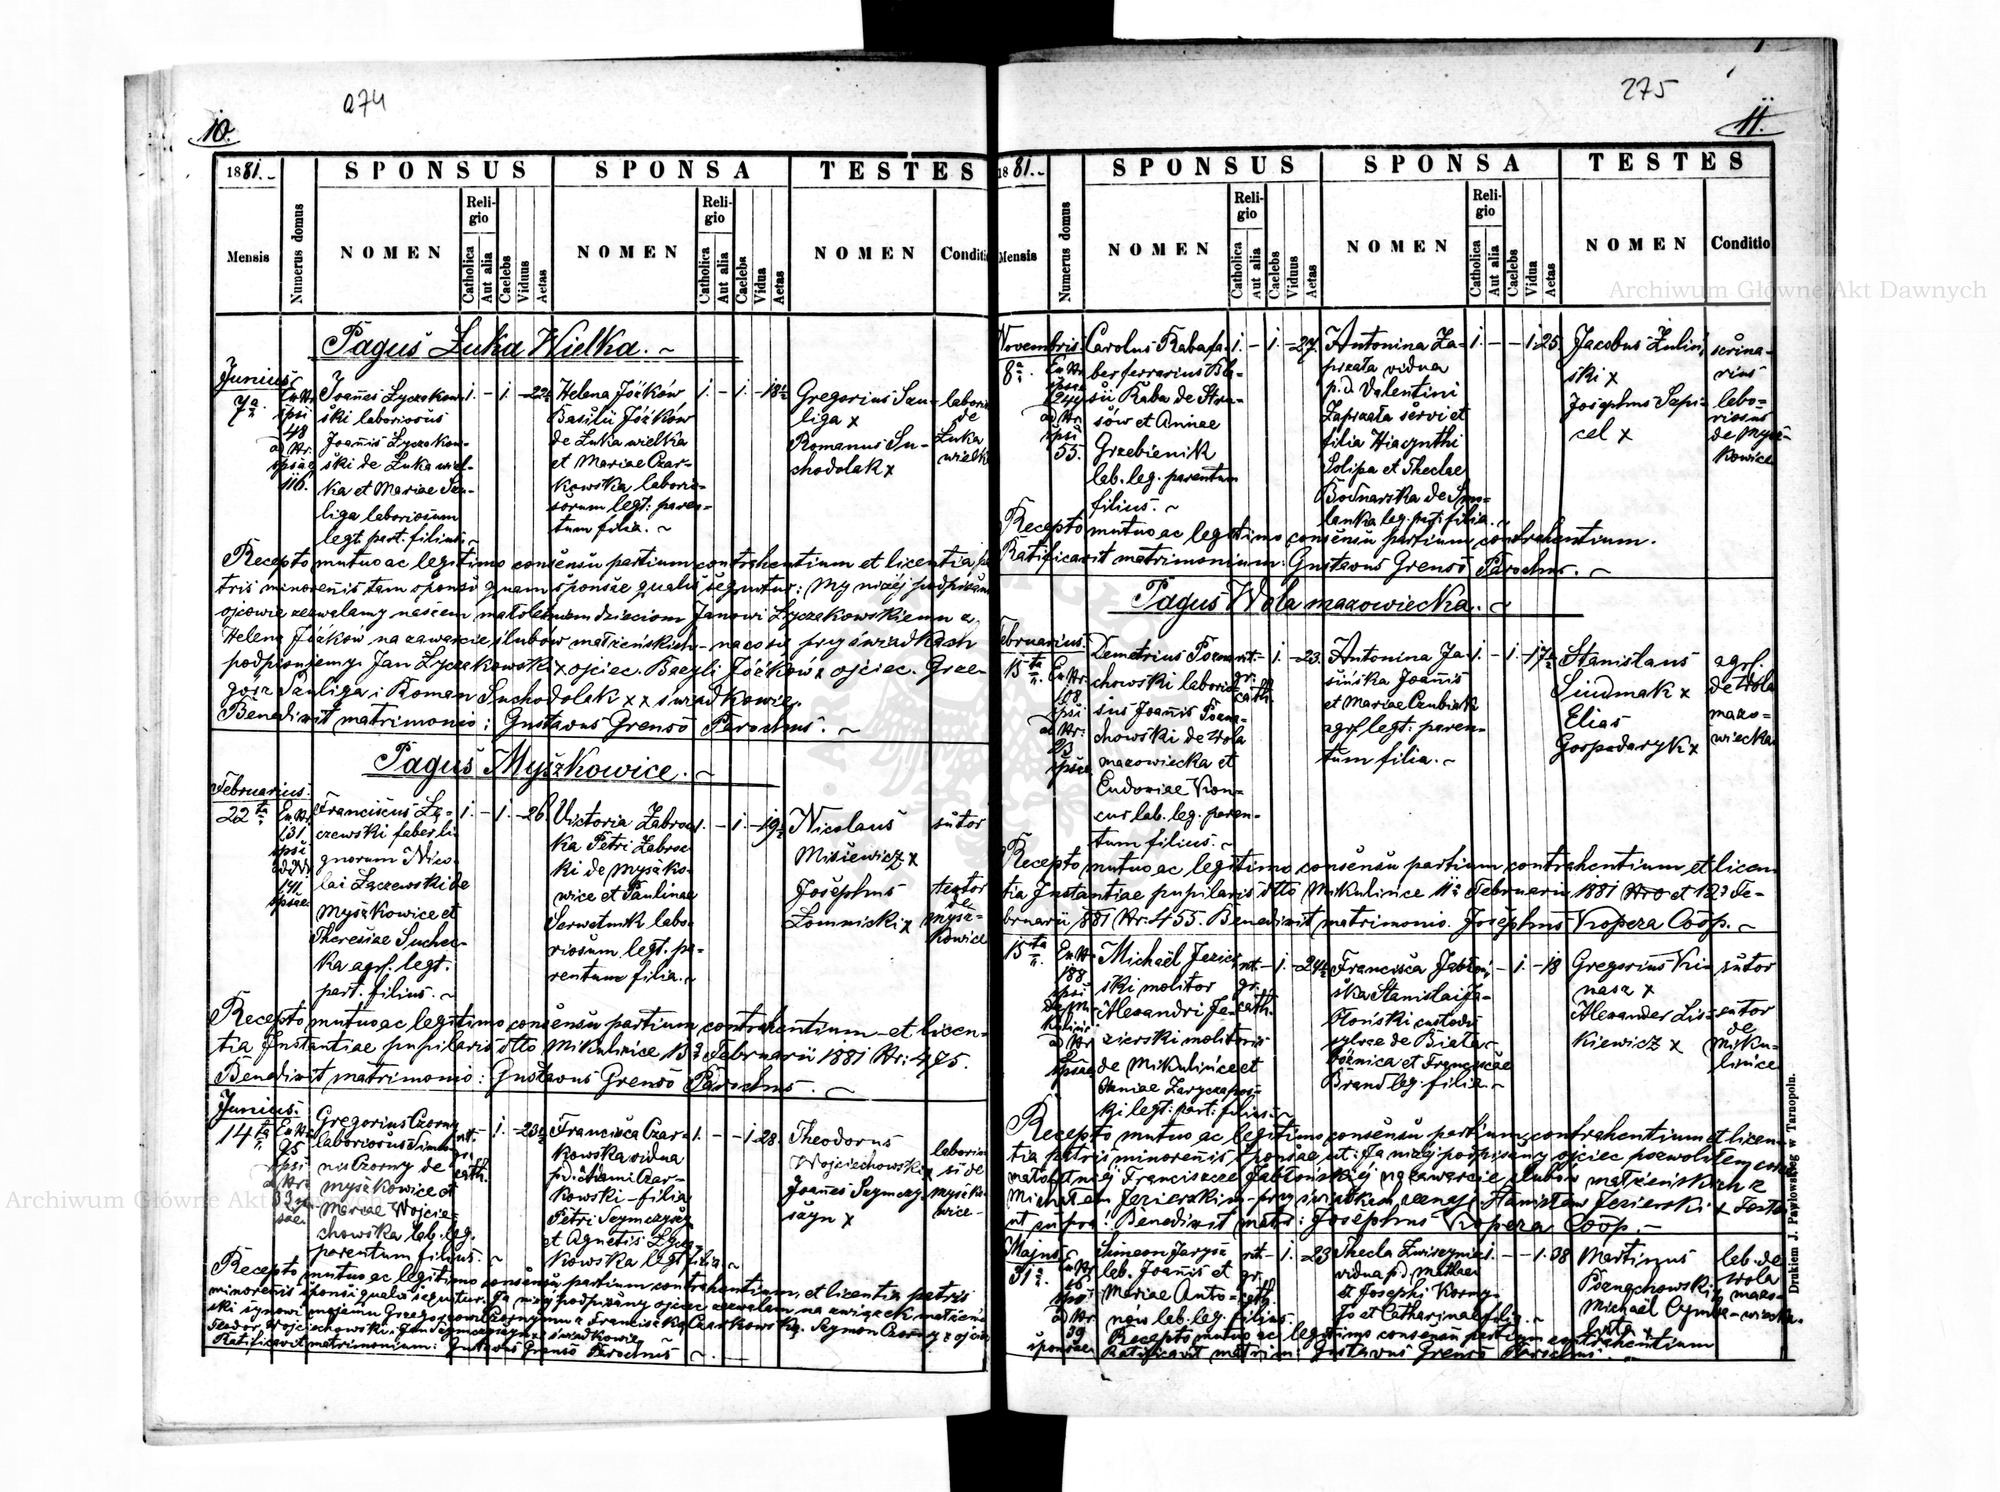 274
10.
1881.
SPONSUS
SPONSA
TESTES
Mensis
Numerus domus
NOMEN
Religio
Catholica
Aut alia
Caelebs
Viduus
Aetas
NOMEN
Religio
Catholica
Aut alia
Caelebs
Vidua
Aetas
NOMEN
Conditio
Pagus Łuka Wielka.
Junius
7a
En Nr.
ipsi
48
ad Nr.
ipsae
116.
Joannes Łyczakow-
ski laboriosus
Joannis Łyczakow-
ski de Łuka wiel-
ka et Mariae Sau-
liga laboriosum
legt. part. filius.
1. - 1. - 22½
Helena Jóźków
Basilii Jóźków
de Łuka wielka
et Mariae Czar-
kowska laborio-
sorum legt: paren-
tum filia.
1. - 1. - 18½
Gregorius Sau-
liga x
Romanus Su-
chodolak x
labori
de
Łuka
wielka
Recepto mutuo ac legitimo consensu partium contrahentium et licentia pa-
tris minorenis tam sponsi quam sponsae qualis sequitur: My niżej podpisani
ojcowie zezwalamy naszem małoletniem dzieciom Janowi Łyczakowskiemu z
Heleną Jóźków na zawarcie ślubów małżeńskich - na co się przy świadkach
podpisujemy. Jan Łyczakowski x ojciec. Bazyli Jóźków x ojciec. Grze-
gorz Sauliga i Roman Suchodolak x x świadkowie.
Benedixit matrimonio: Gustavus Grenso Parochus.
Pagus Myszkowice.
Februarius.
22ta
En Nr.
131
ipsi
ad Nr.
141
ipsae
Franciscus Łą-
czewski faber li-
gnorum Nico-
lai Łączewski de
Myszkowice et
Theresiae Suchec-
ka agr. legt.
part. filius.
1. - 1. - 26
Victoria Zabroc-
ka Petri Zabroc-
ki de Myszko-
wice et Paulinae
Serwatnik labo-
riosum legt. pa-
rentum filia.
1. - 1. - 19½
Nicolaus
Misiewicz x
Josephus
Łomnicki x
sutor
textor
de
Mysz-
kowice
Recepto mutuo ac legitimo consensu partium contrahentium et licen-
tia Instantiae pupilaris dtto Mikulińce 13a Februarii 1881 Nr: 475.
Benedixit matrimonio: Gustavus Grenso Parochus.
Junius.
14ta
En Nr.
95
ipsi
ad Nr.
33
ipsae
Gregorius Czorny
laboriosus Simeo-
nis Czorny de
Myszkowice et
Mariae Wojcie-
chowska lab. leg.
parentum filius.
rit. gr. cath.
1. - 23½
Francisca Czar-
kowska vidua
p.d. Adami Czar-
kowski - filia
Petri Szymczyszyn
et Agnetis Łycz-
kowska legt. filia.
1. - - 1. 28.
Theodorus
Wojciechowski x
Joannes Szymczy-
szyn x
laborio
si de
Myszko-
wice-
Recepto mutuo ac legitimo consensu partium contrahentium, et licentia patris
minorenis sponsi qualis sequitur. Ja niżej podpisany ojciec zezwalam na związek małżeń-
ski synowi mojemu Grzegorzowi Czornemu z Franciszką Czarkowską. Szymon Czorny x ojciec
Teodor Wojciechowski. Jan Szymczyszyn x świadkowie.
Ratificavit matrimonium: Gustavus Grenso Parochus
275
11.
1881.
SPONSUS
SPONSA
TESTES
Mensis
Numerus domus
NOMEN
Religio
Catholica
Aut alia
Caelebs
Viduus
Aetas
NOMEN
Religio
Catholica
Aut alia
Caelebs
Vidua
Aetas
NOMEN
Conditio
Novembris.
8a
En Nr.
ipsae
124
ad Nr.
ipsi
55.
Carolus Raba fa-
ber ferrarius Bla-
sii Raba de Stru-
sów et Annae
Grzebienik
lab. leg. parentum
filius.
1. - 1. - 27.
Antonina Za-
przała vidua
p.d. Valentini
Zaprzała servi et
filia Hiacynthi
Solipa et Theclae
Bodnarska de Smo-
lanka leg. part. filia.
1. - - 1. 25.
Jacobus Żuliń-
ski x
Josephus Sapi-
cel x
scrina-
rius
labo-
riosus
de Mysz-
kowice
Recepto mutuo ac legitimo consensu partium contrahentium.
Ratificavit matrimonium: Gustavus Grenso Parochus.
Pagus Wola mazowiecka.
Februarius.
15ta
En Nr.
108
ipsi
ad Nr.
23
ipsae
Demetrius Pozna-
chowski laborio-
sus Joannis Pozna-
chowski de Wola
mazowiecka et
Eudoxiae Kon-
cur lab. leg. paren-
tum filius.
rit. gr. cath.
1. - 23.
Antonina Ja-
sińska Joannis
et Mariae Czubiak
agr. legt: paren-
tum filia.
1. - 1. - 17½
Stanislaus
Sindmak x
Elias
Gospodaryk x
agr.
de Wola
mazo-
wiecka
Recepto mutuo ac legitimo consensu partium contrahentium et licen
tia Instantiae pupilaris dtto Mikulińce 11a Februarii 1881 Nro et 12a Fe-
bruarii 881 Nr. 455. Benedixit matrimonio. Josephus Kopeza Coop.
15ta
En Nr.
188
ipsi
de Mi-
kulińce
ad Nr.
ipsae
Michaël Jezier-
ski molitor
Alexandri Je-
zierski molitoris
de Mikulińce et
Anniae Zarycza-
ki legt: part: filius.
rit. gr. cath.
1. - 24½
Francisca Jabłoń-
ska Stanislai Ja-
błoński custodis
sylvae de Biała-
bóżnica et Franciscae
Brand leg. filia.
1. - 18
Gregorius Ki-
nasz x
Alexander Lis-
kiewicz x
sutor
sutor
de
Miku-
lińce
Recepto mutuo ac legitimo consensu partium contrahentium et licen
tia patris minorenis sponsae ut: Ja niżej podpisany ojciec pozwoliłem córce
małoletniej Franciszce Jabłońskiej na zawarcie ślubów małżeńskich z
Michałem Jezierskim przy świadkach
ut supra. Benedixit matr: Josephus Kopeza Coop.
Majus
31a
En Nr.
16
ipsi
ad Nr.
39
ipsae
Simeon Jarysz
lab. Joannis et
Mariae Anto-
nois lab. leg. filius.
rit. gr. cath.
1. - 23
Thecla Zwirzynia
vidua p.d. Mathaei
et Josephi Korny-
ło et Catharinae filia.
1. - - 1. 38
Martinus
Poznachowski x
Michaël Cymba-
lista x
lab. de
Wola
mazo-
wiecka.
Recepto mutuo ac legitimo consensu partium contrahentium
Ratificavit matrim: Gustavus Grenso Parochus.
Drukiem J. Pawłowskieg w Tarnopolu.
Archiwum Główne Akt Dawnych
Archiwum Główne Akt Dawnych